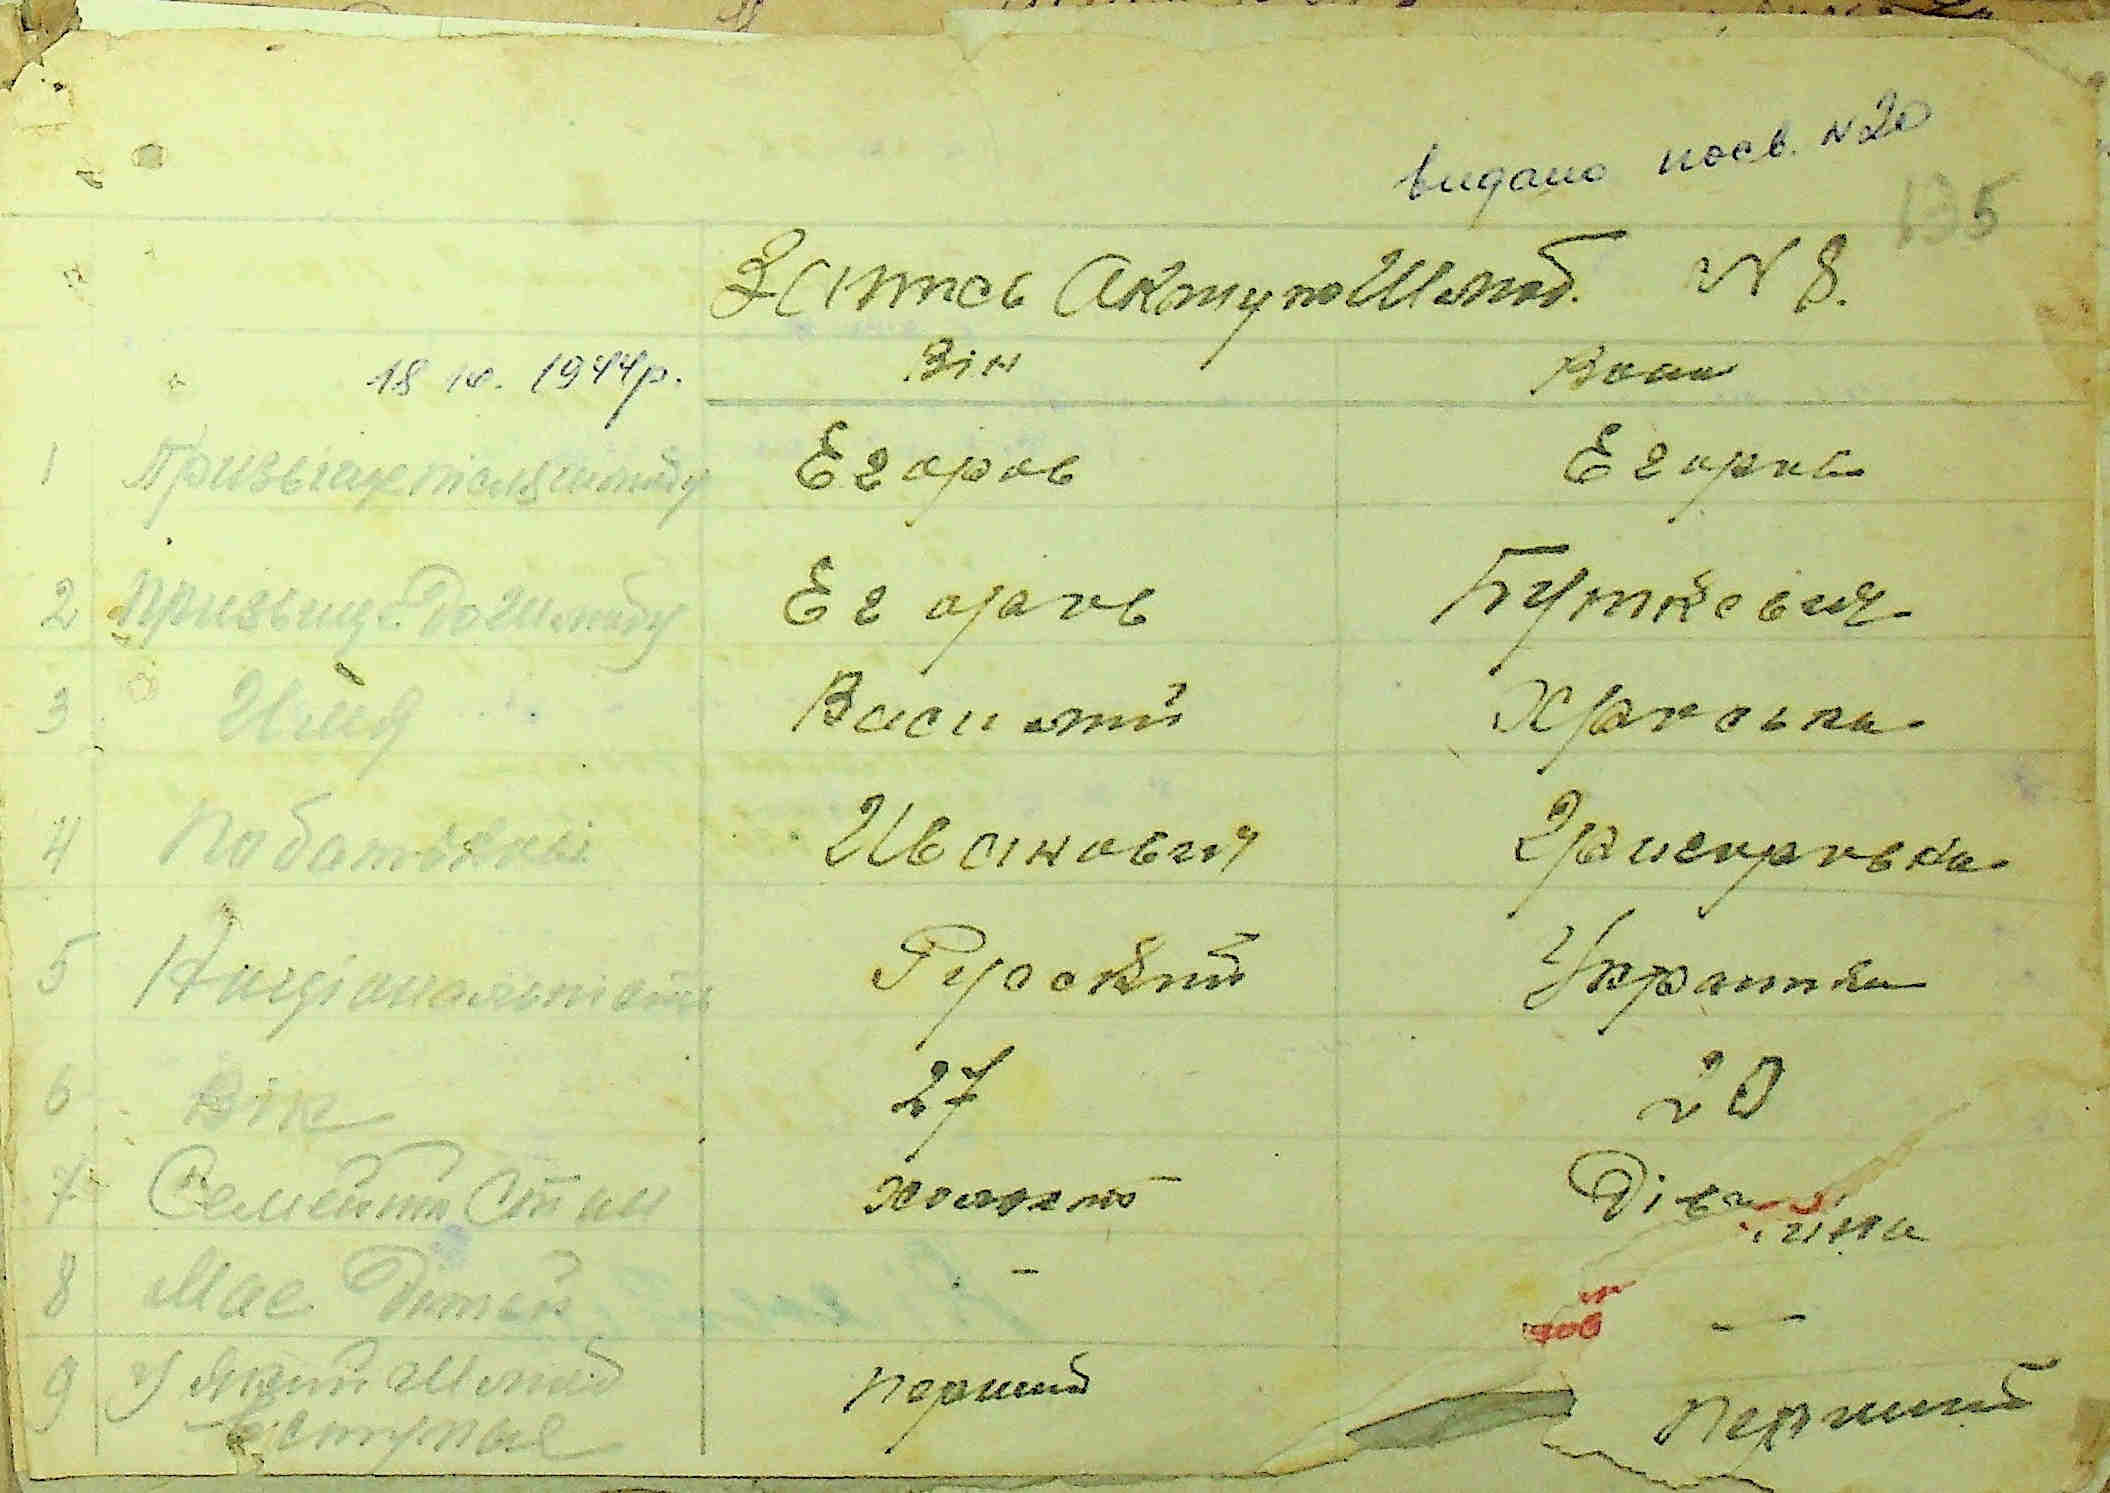 видано посв. N 20
135
Запись Акту по Шлюб. N 8.
18 1850 1944р. Він Вона
1 Призвіще після шлюбу Егоров Егорова
2 Призвище до Шлюбу Егоров Буткевич
3 Имя Василий
4 По батькові Иванович Григоровна
5 Національність Руский Украинка
6 Вік 27 20
7 Семейний Стан холостой Дівчина
8 Має Дитей - -
9 У який Шлюб вступає перший перший